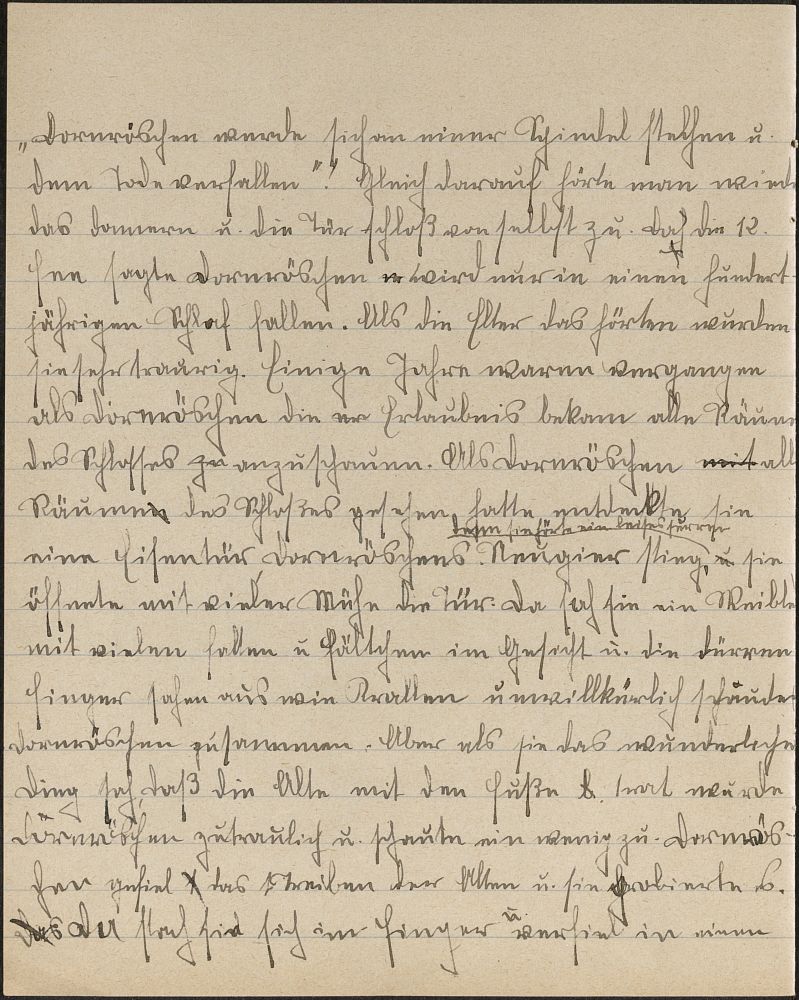 „Dornröschen werde sich an einer Spindel stechen u.
dem Tode verfallen“." Gleich darauf hörte man wied
das donnern u. die Tür schloß von selbst zu. Doch die 12.
Fee sagte Dornröschen wird nur in einen hundert-
jährigen Schlaf fallen. Als die Elter das hörten wurden
sie sehr traurig. Einige Jahre waren vergangen
als Dörnröschen die er Erlaubnis bekam alle Räume
des Schlosses zu anzuschauen. Als Dornröschen mit all
Räumen des Schloßes gesehen hatte entdeckte sie
denn sie hörte ein leises surren
eine Eisentür, Dornröschens. Neugier stieg, u sie
öffnete mit vieler Mühe die Tür. Da sah sie ein Weible
mit vielen falten u Fältchen im Gesicht u. die dürren
Finger sahen aus wie Krallen unwillkürlich schaude
Dornröschen zusammen. Aber als sie das wunderliche
Ding sah, daß die Alte mit den Fuße b. trat wurde
Dörnröschen zutraulich u. schaute ein wenig zu. Dornrös-
chen gefiel das Treiben der Alten u. sie probierte es.
Das Da stach sie sich im Finger u. verfiel in einen